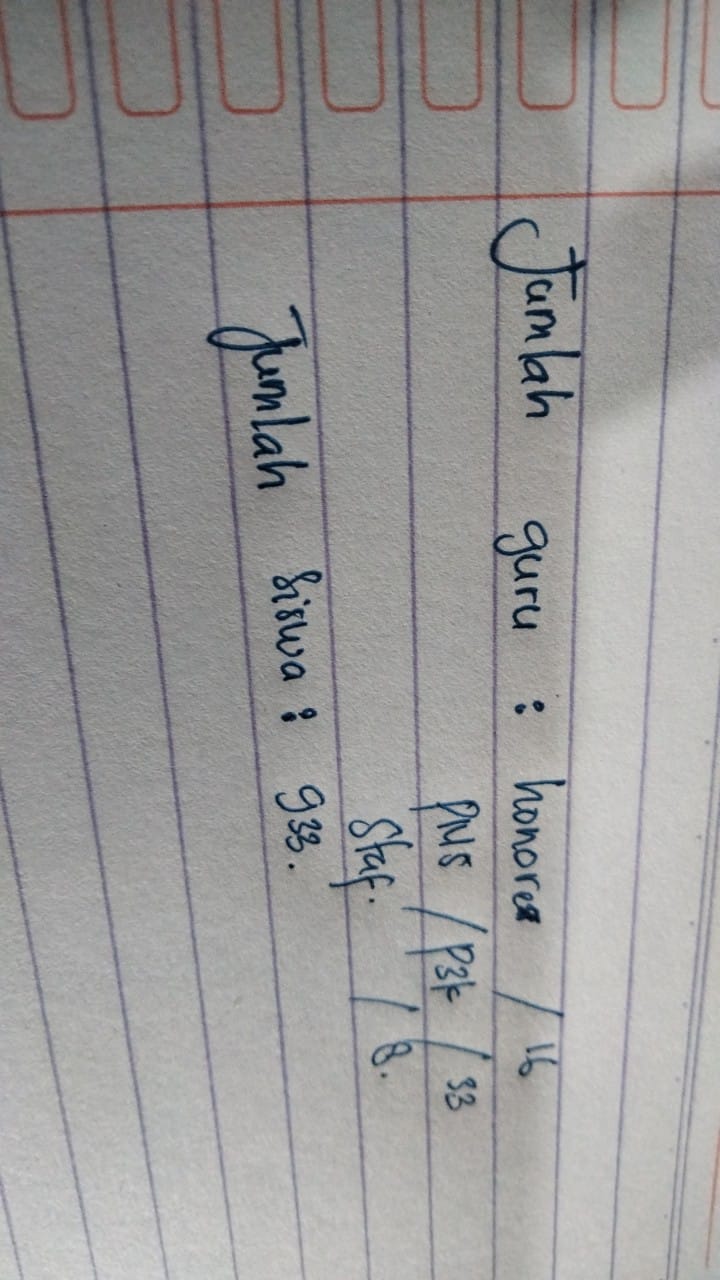 Jumlah guru : honorer / 16
PNS / P3k / 33
Staf. / 8.
Jumlah siswa : 933.